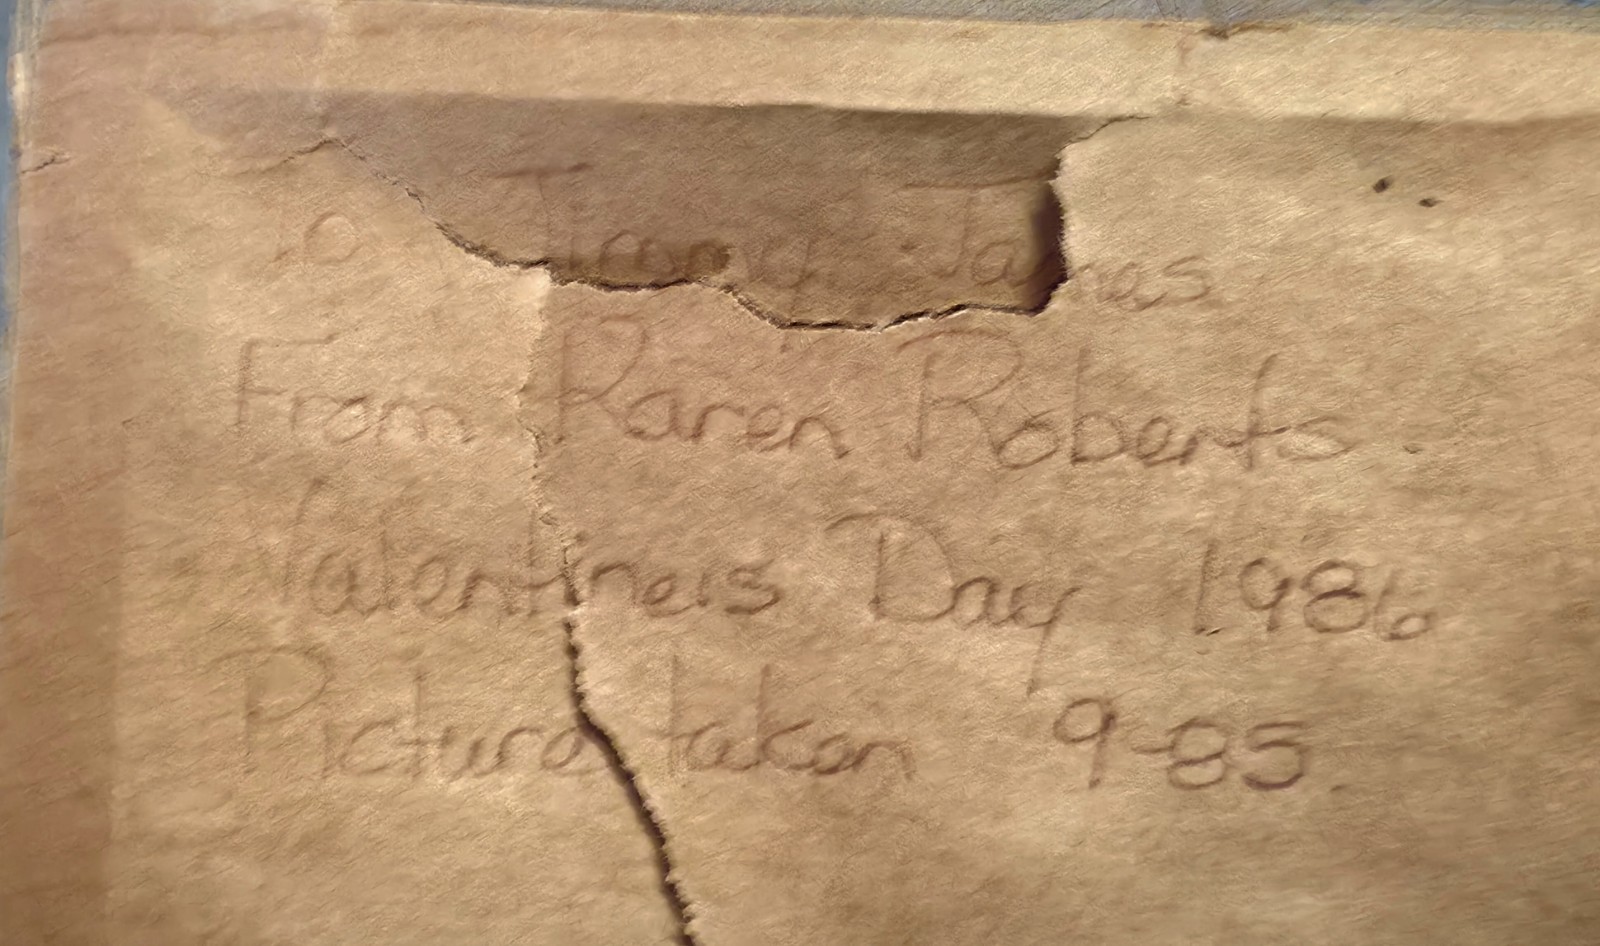 To Jimmy James
From Karen Roberts
Valentine's Day 1986
Picture taken 9-85